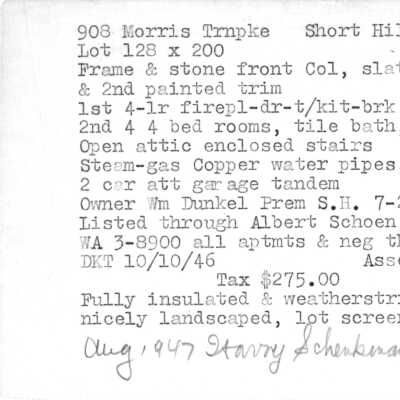 908 Morris Trnpke Short Hil
Lot 128 x 200
Frame & stone front Col, slat
& 2nd painted trim
1st 4-lr firepl-dr-t/kit-brk
2nd 4 4 bed rooms, tile bath,
Open attic enclosed stairs
Steam-gas Copper water pipes.
2 car att garage tandem
Owner Wm Dunkel Prem S.H. 7-2
Listed through Albert Schoen
WA 3-8900 all aptmts & neg th
DKT 10/10/46 Asse
Tax $275.00
Fully insulated & weatherstri
nicely landscaped, lot screen
Aug, 1947 Harry Schenkman